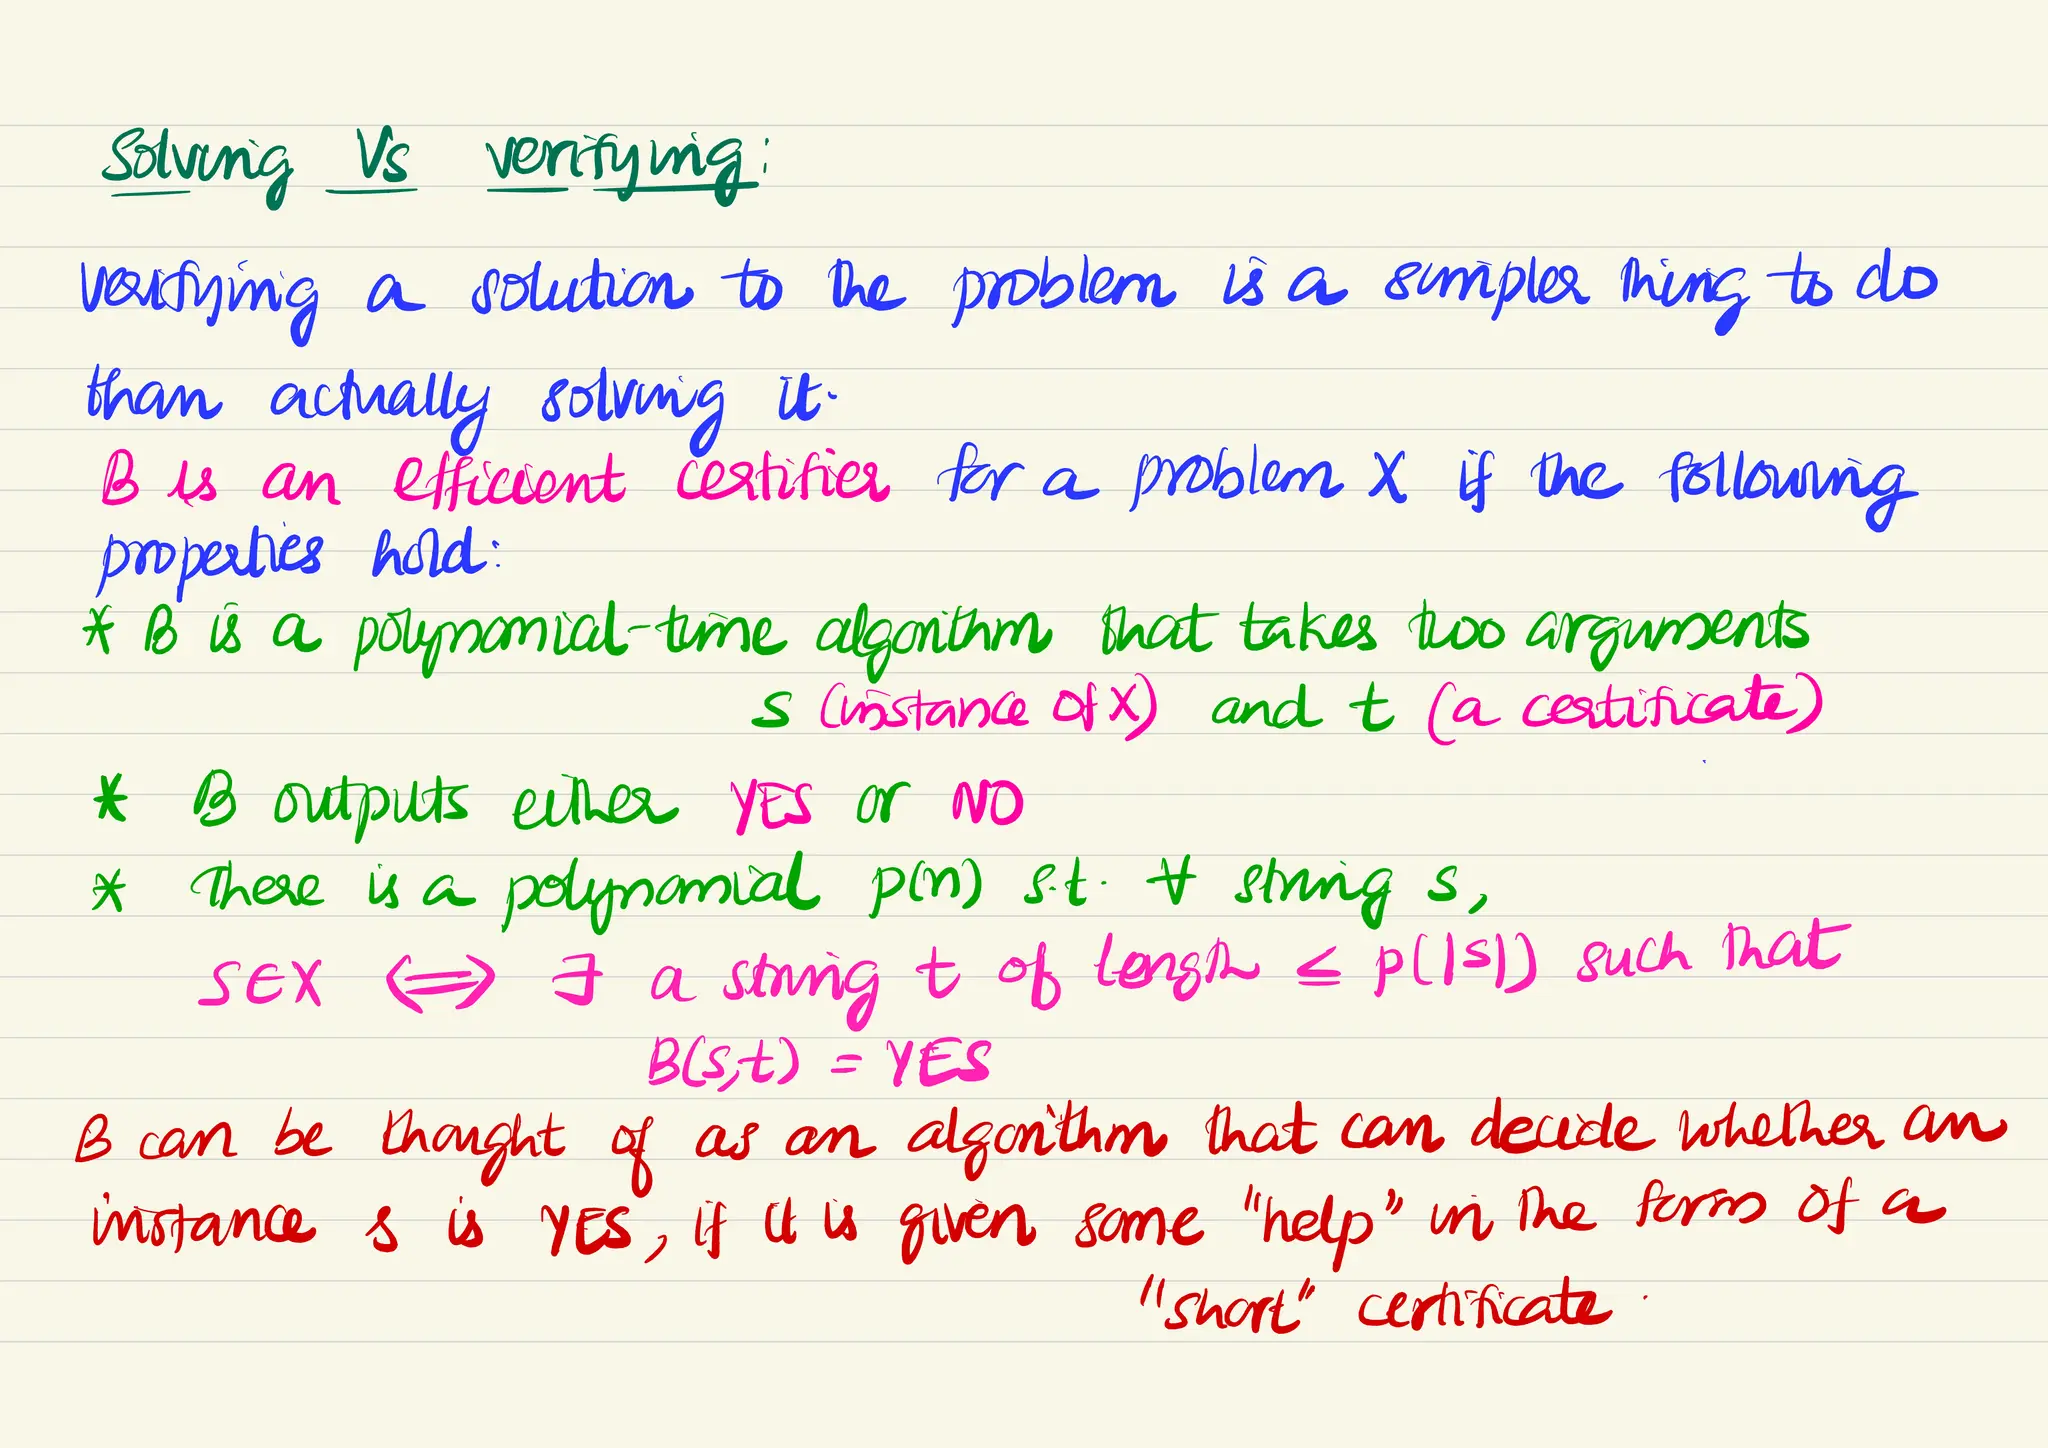 Solving Vs verifying:
Verifying a solution to the problem is a simpler thing to do
than actually solving it.
B is an efficient certifier for a problem X if the following
properties hold:
* B is a polynomial-time algorithm that takes two arguments
s (instance of X) and t (a certificate)
* B outputs either YES or NO
* There is a polynomial p(n) s.t. ∀ string s,
s∈X ⟺ ∃ a string t of length ≤ p(|s|) such that
B(s,t) = YES
B can be thought of as an algorithm that can decide whether an
instance s is YES, if it is given some "help" in the form of a
"short" certificate.